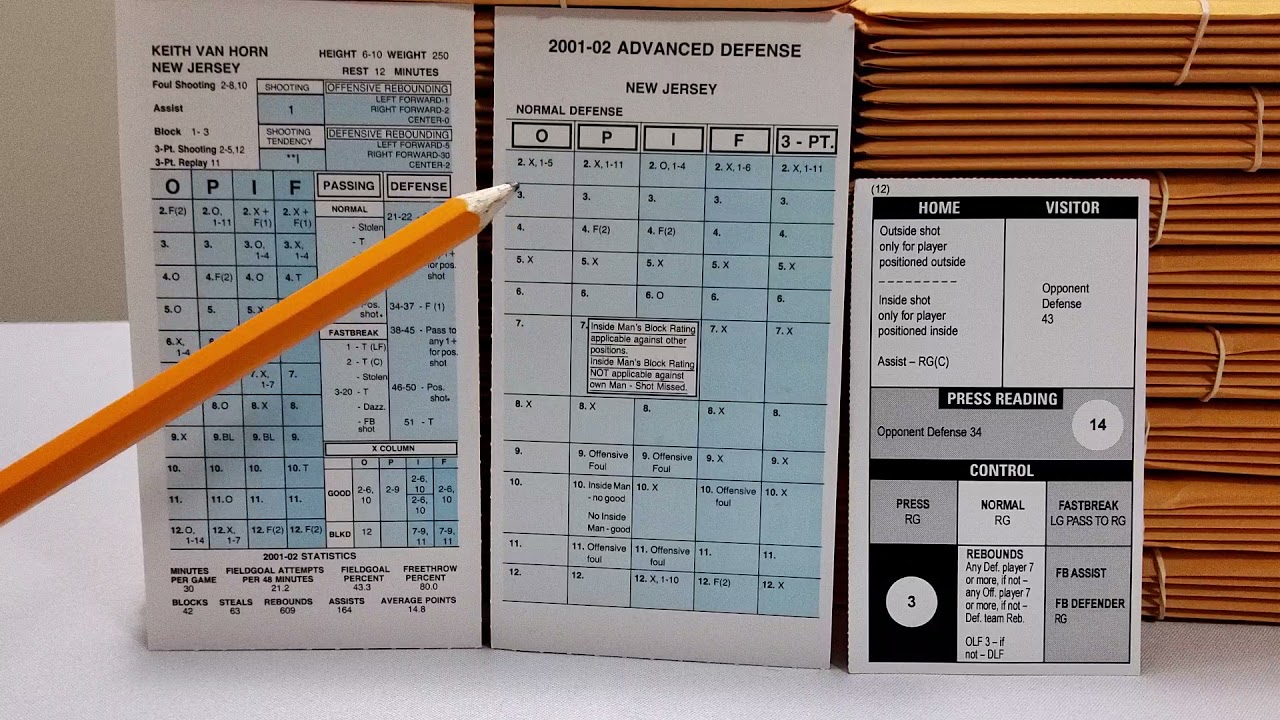 KEITH VAN HORN
NEW JERSEY
HEIGHT 6-10 WEIGHT 250
REST 12 MINUTES
Foul Shooting 2-8,10
Assist
Block 1- 3
3-Pt. Shooting 2-5,12
3-Pt. Replay 11
SHOOTING
1
SHOOTING
TENDENCY
**I
OFFENSIVE REBOUNDING
LEFT FORWARD-1
RIGHT FORWARD-2
CENTER-0
DEFENSIVE REBOUNDING
LEFT FORWARD-5
RIGHT FORWARD-30
CENTER-2
O P I F PASSING DEFENSE
2. F(2) 2. O, 1-11 2. X + F(1) 2. X + F(1)
3. 3. 3. O, 1-4 3. X, 1-4
4. O 4. F(2) 4. O 4. T
5. O 5. 5. X
6. X, 1-4
7. X, 1-7 7.
8. O 8. X 8.
9. X 9. BL 9. BL 9.
10. 10. 10. 10. T
11. 11. O 11. 11.
12. O, 1-14 12. X, 1-7 12. F(2) 12. F(2)
NORMAL
- Stolen
- T
shot.
FASTBREAK
1 - T (LF)
2 - T (C)
- Stolen
3-20 - T
- Dazz.
- FB
shot
21-22 -
for pos.
shot
34-37 - F (1)
38-45 - Pass to
any 1+
for pos.
shot
46-50 - Pos.
shot.
51 - T
X COLUMN
O P I F
GOOD 2-6, 10 2-9 2-6, 10 2-6, 10 2-6, 10
BLKD 12 7-9, 11 7-9, 11
2001-02 STATISTICS
MINUTES PER GAME 30
FIELDGOAL ATTEMPTS PER 48 MINUTES 21.2
FIELDGOAL PERCENT 43.3
FREETHROW PERCENT 80.0
BLOCKS 42
STEALS 63
REBOUNDS 609
ASSISTS 164
AVERAGE POINTS 14.8
2001-02 ADVANCED DEFENSE
NEW JERSEY
NORMAL DEFENSE
O P I F 3 - PT.
2. X, 1-5 2. X, 1-11 2. O, 1-4 2. X, 1-6 2. X, 1-11
3. 3. 3. 3. 3.
4. 4. F(2) 4. F(2) 4. 4.
5. X 5. X 5. X 5. X 5. X
6. 6. 6. O 6. 6.
7. 7. 7. X 7. X
Inside Man's Block Rating
applicable against other
positions.
Inside Man's Block Rating
NOT applicable against
own Man - Shot Missed.
8. X 8. X 8. 8. X 8.
9. 9. Offensive Foul 9. Offensive Foul 9. X 9. X
10. 10. Inside Man - no good No Inside Man - good 10. X 10. Offensive foul 10. X
11. 11. Offensive foul 11. Offensive foul 11. 11.
12. 12. 12. X, 1-10 12. F(2) 12. X
(12)
HOME VISITOR
Outside shot
only for player
positioned outside
Inside shot
only for player
positioned inside
Assist – RG(C)
Opponent
Defense
43
PRESS READING
Opponent Defense 34
14
CONTROL
PRESS
RG
NORMAL
RG
FASTBREAK
LG PASS TO RG
3
REBOUNDS
Any Def. player 7
or more, if not –
any Off. player 7
or more, if not –
Def. team Reb.
OLF 3 – if
not – DLF
FB ASSIST
FB DEFENDER
RG